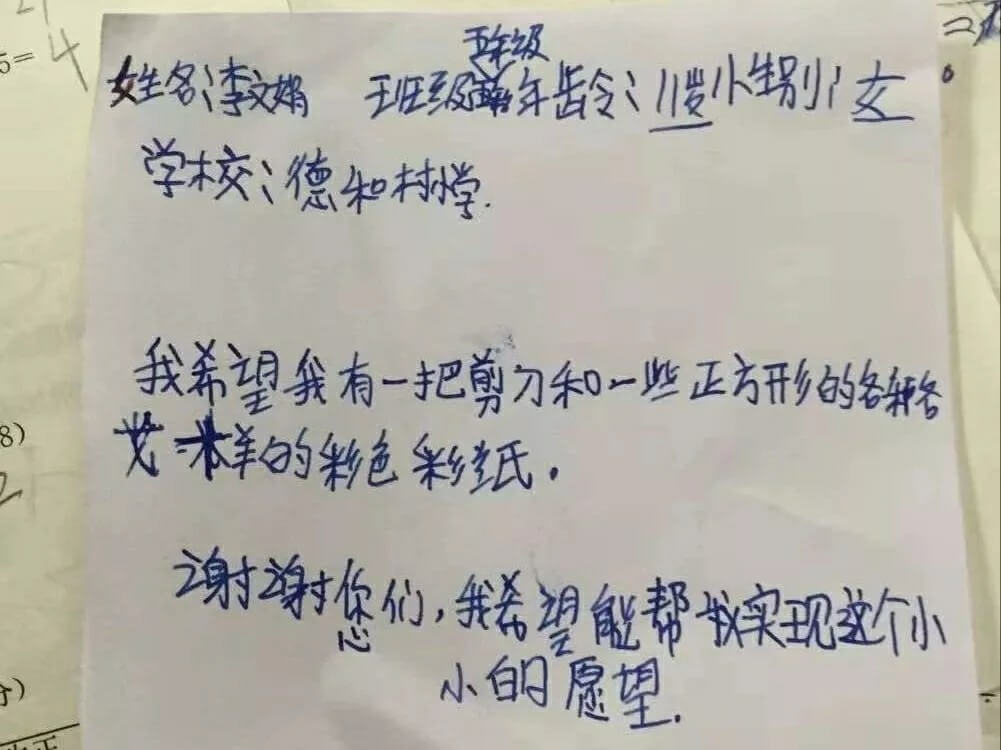 5=4
五年级
姓名:李文娟 班级 年龄:11岁 小性别:女。
学校:德和村小学.
我希望我有一把剪刀和一些正方形的各种各
样的彩色彩纸.
8)
谢谢您们,我希望能帮我实现这个小
小的愿望.